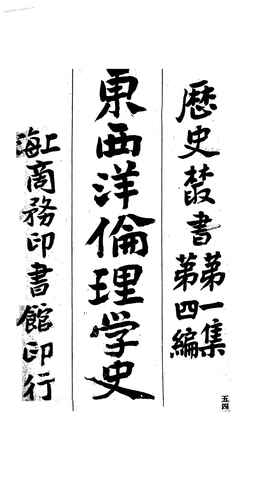 歷史叢書第一集
第四編
東西洋倫理学史
上海商務印書館印行
五四